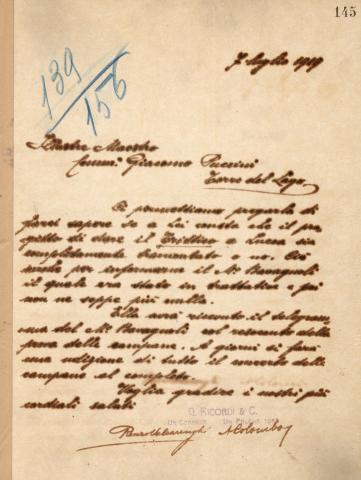 145
7 luglio 1919
139
156
Illustre Maestro
Comm. Giacomo Puccini
Torre del Lago
Ci permettiamo pregarla di
farci sapere se a Lei consta che il pro
getto di dare il Trittico a Lucca sia
completamente tramontato o no. Ciò
anche per informarne il M. Bavagnoli
il quale era stato in trattative e poi
non ne seppe più nulla.
Ella avrà ricevuto il telegram
ma del M. Bavagnoli col resoconto della
prova delle campane. A giorni si farà
una audizione di tutto il concerto delle
campane al completo.
Voglia gradire i nostri più
cordiali saluti
G. RICORDI & C.
Renzo Valcarenghi A Colombo